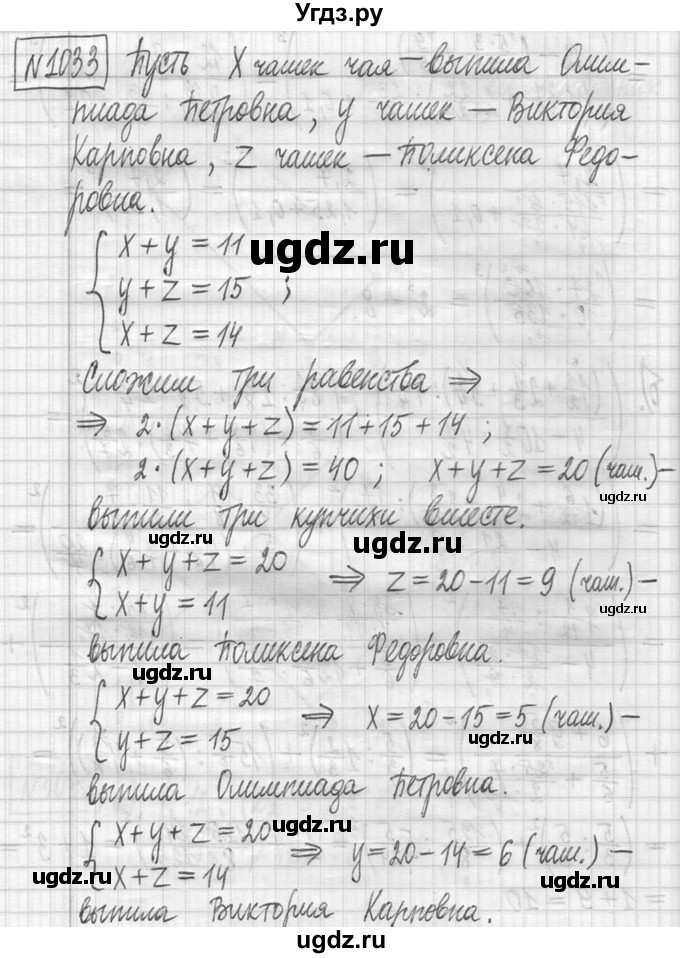 Угдз.ру
№1033 Пусть x чашек чая — выпила Олим-
пиада Петровна, y чашек — Виктория
Карповна, z чашек — Поликсена Федо-
ровна.
x + y = 11
ugdz.ru
y + z = 15 ;
x + z = 14
Сложим три равенства ⇒
⇒ 2·(x+y+z) = 11+15+14 ;
2·(x+y+z) = 40 ; x+y+z = 20 (чаш.) —
ugdz.ru
ugdz.ru
выпили три купчихи вместе.
ugdz.ru
x + y + z = 20
⇒ z = 20-11 = 9 (чаш.) —
x + y = 11
ugdz.ru
выпила Поликсена Федоровна.
ugdz.ru
x+y+z = 20
⇒ x = 20-15 = 5 (чаш.) —
y+z = 15
ugdz.ru
выпила Олимпиада Петровна.
x+y+z = 20
ugdz.ru
⇒ y = 20-14 = 6 (чаш.) —
x+z = 14
ugdz.ru
ugdz.ru
выпила Виктория Карповна.
ugdz.ru